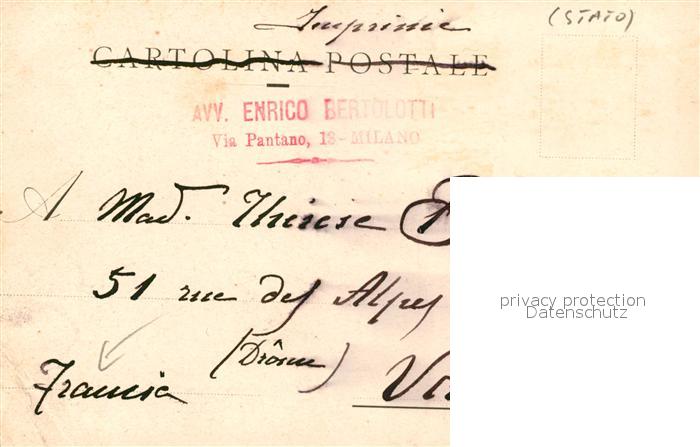 Imprimée
(STATO)
CARTOLINA POSTALE
AVV. ENRICO BERTOLOTTI
Via Pantano, 13 - MILANO
A Mad. Thérèse
51 rue des Alpes
(Drôme)
Francia
privacy protection
Datenschutz